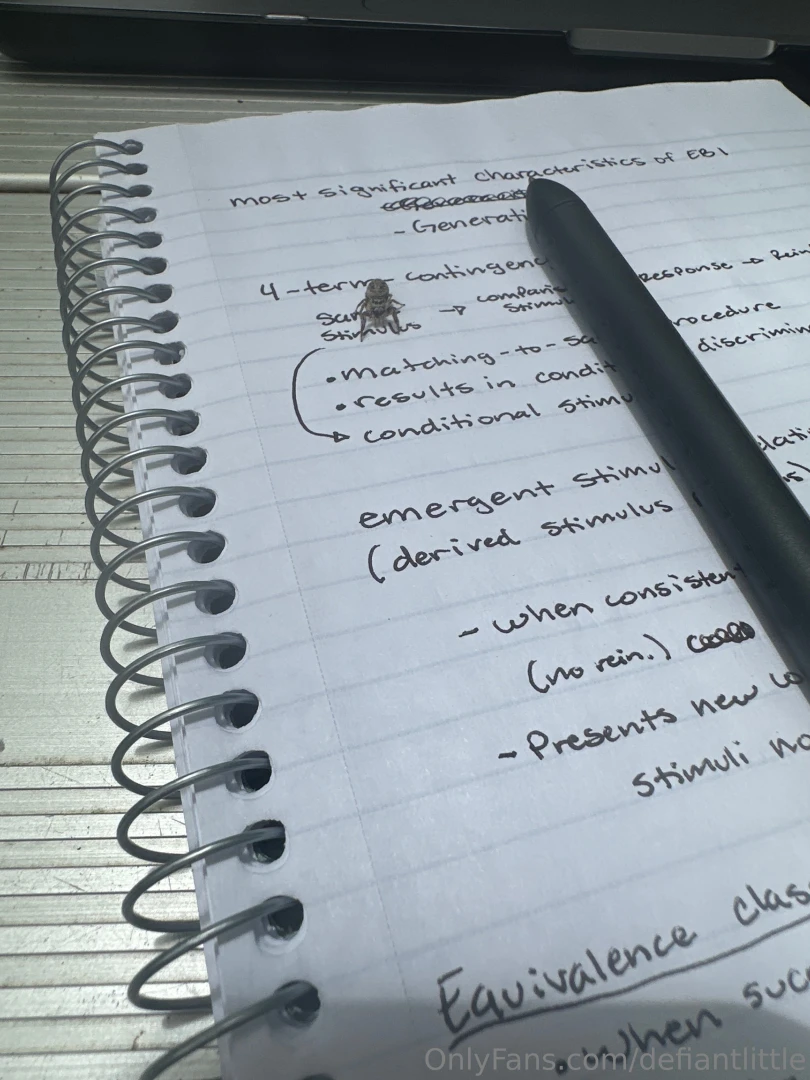 most significant characteristics of EB1
- Generati
4-term contingenc
Stimulus → comparis Stimul Response → Rein
• matching-to-sa rocedure
• results in condit discrimin
conditional stimu
emergent stimul lati
(derived stimulus s)
- when consisten
(no rein.)
- Presents new co
stimuli no
Equivalence clas
• When succ
OnlyFans.com/defiantlittle